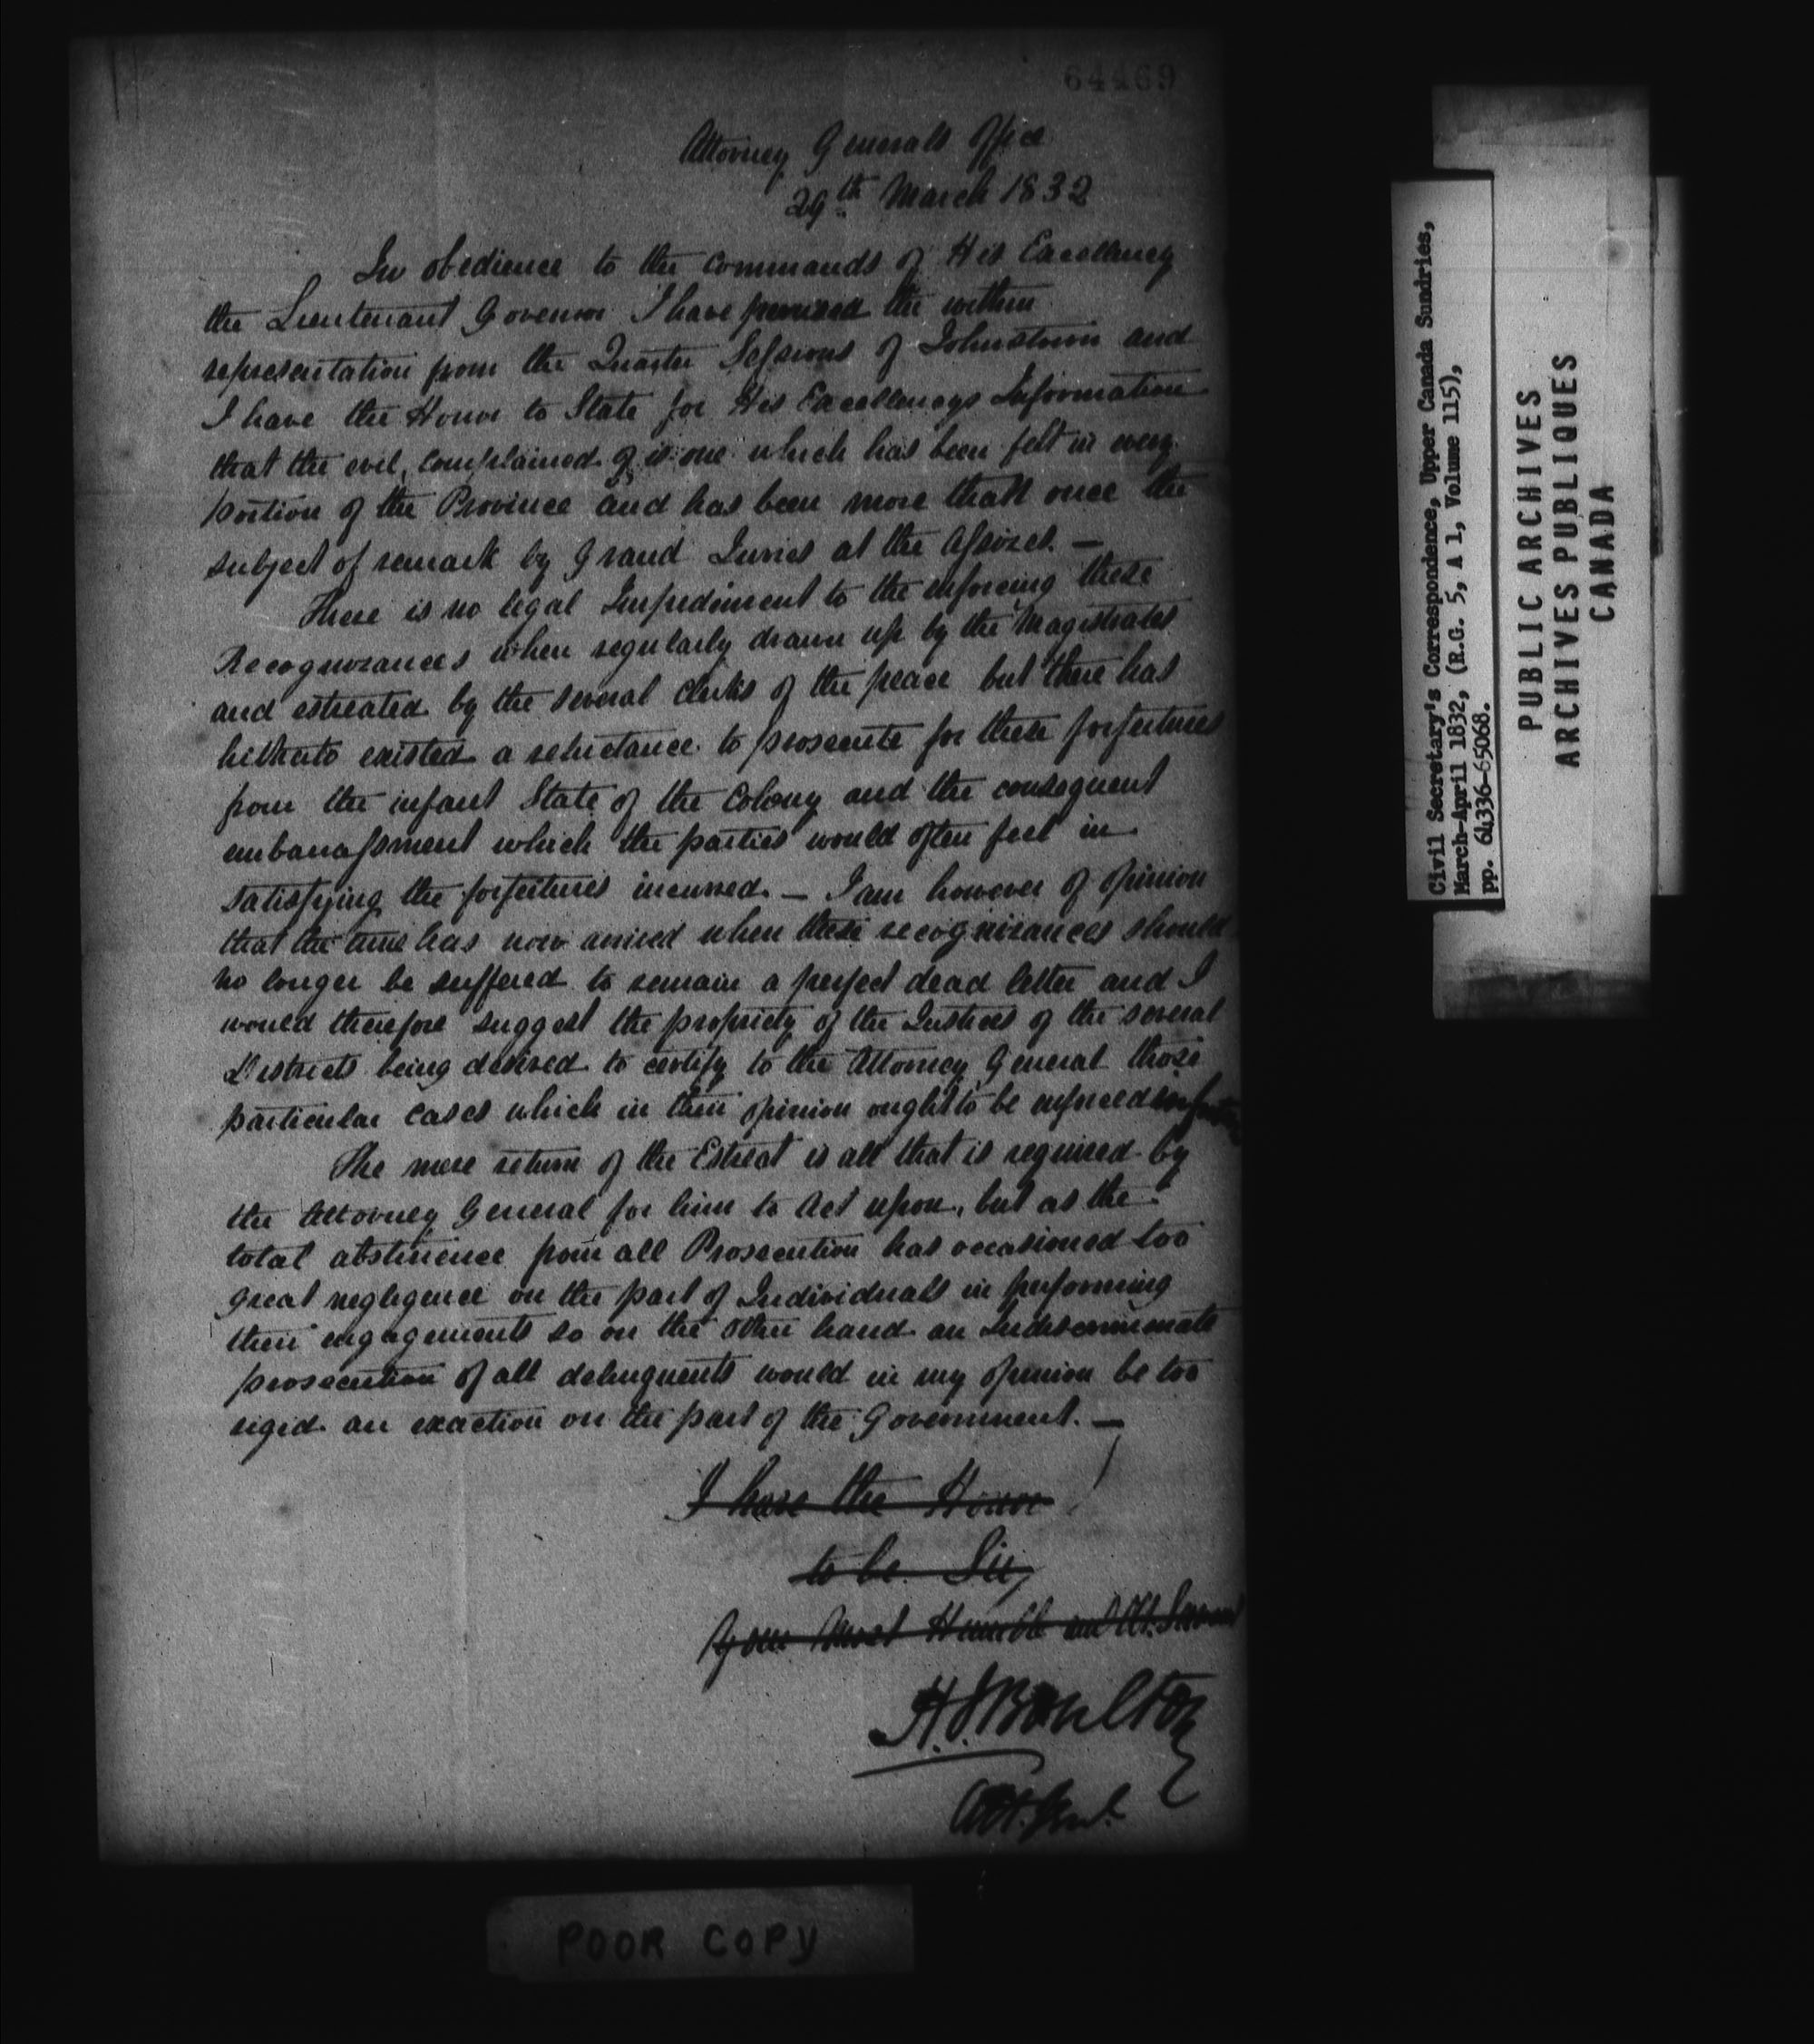 64469
Attorney Generals Office
29th March 1832
In obedience to the Commands of His Excellency
the Lieutenant Governor I have perused the within
representation from the Quarter Sessions of Johnstown and
I have the Honor to State for His Excellencys Information
that the evil, complained of is one which has been felt in every
portion of the Province and has been more than once the
subject of remark by Grand Juries at the Assizes. —
There is no legal Impediment to the enforcing these
Recognizances when regularly drawn up by the Magistrates
and estreated by the several Clerks of the peace but there has
hitherto existed a reluctance to prosecute for these forfeitures
from the infant State of the Colony and the consequent
embarrassment which the parties would often feel in
satisfying the forfeitures incurred. — I am however of Opinion
that the time has now arrived when these recognizances should
no longer be suffered to remain a perfect dead letter and I
would therefore suggest the propriety of the Justices of the several
Districts being desired to certify to the Attorney General those
particular cases which in their opinion ought to be enforced
The mere return of the Estreat is all that is required by
the Attorney General for him to Act upon, but as the
total abstinence from all Prosecution has occasioned too
great negligence on the part of Individuals in performing
their engagements so on the other hand an Indiscriminate
prosecution of all delinquents would in my opinion be too
rigid an exaction on the part of the Government. —
I have the Honor
to be Sir,
Your Most Humble and Ob. Servant
H.J. Boulton
Att. Genl.
POOR COPY
Civil Secretary's Correspondence, Upper Canada Sundries,
March-April 1832, (R.G. 5, A 1, Volume 115),
pp. 64336-65068.
PUBLIC ARCHIVES
ARCHIVES PUBLIQUES
CANADA